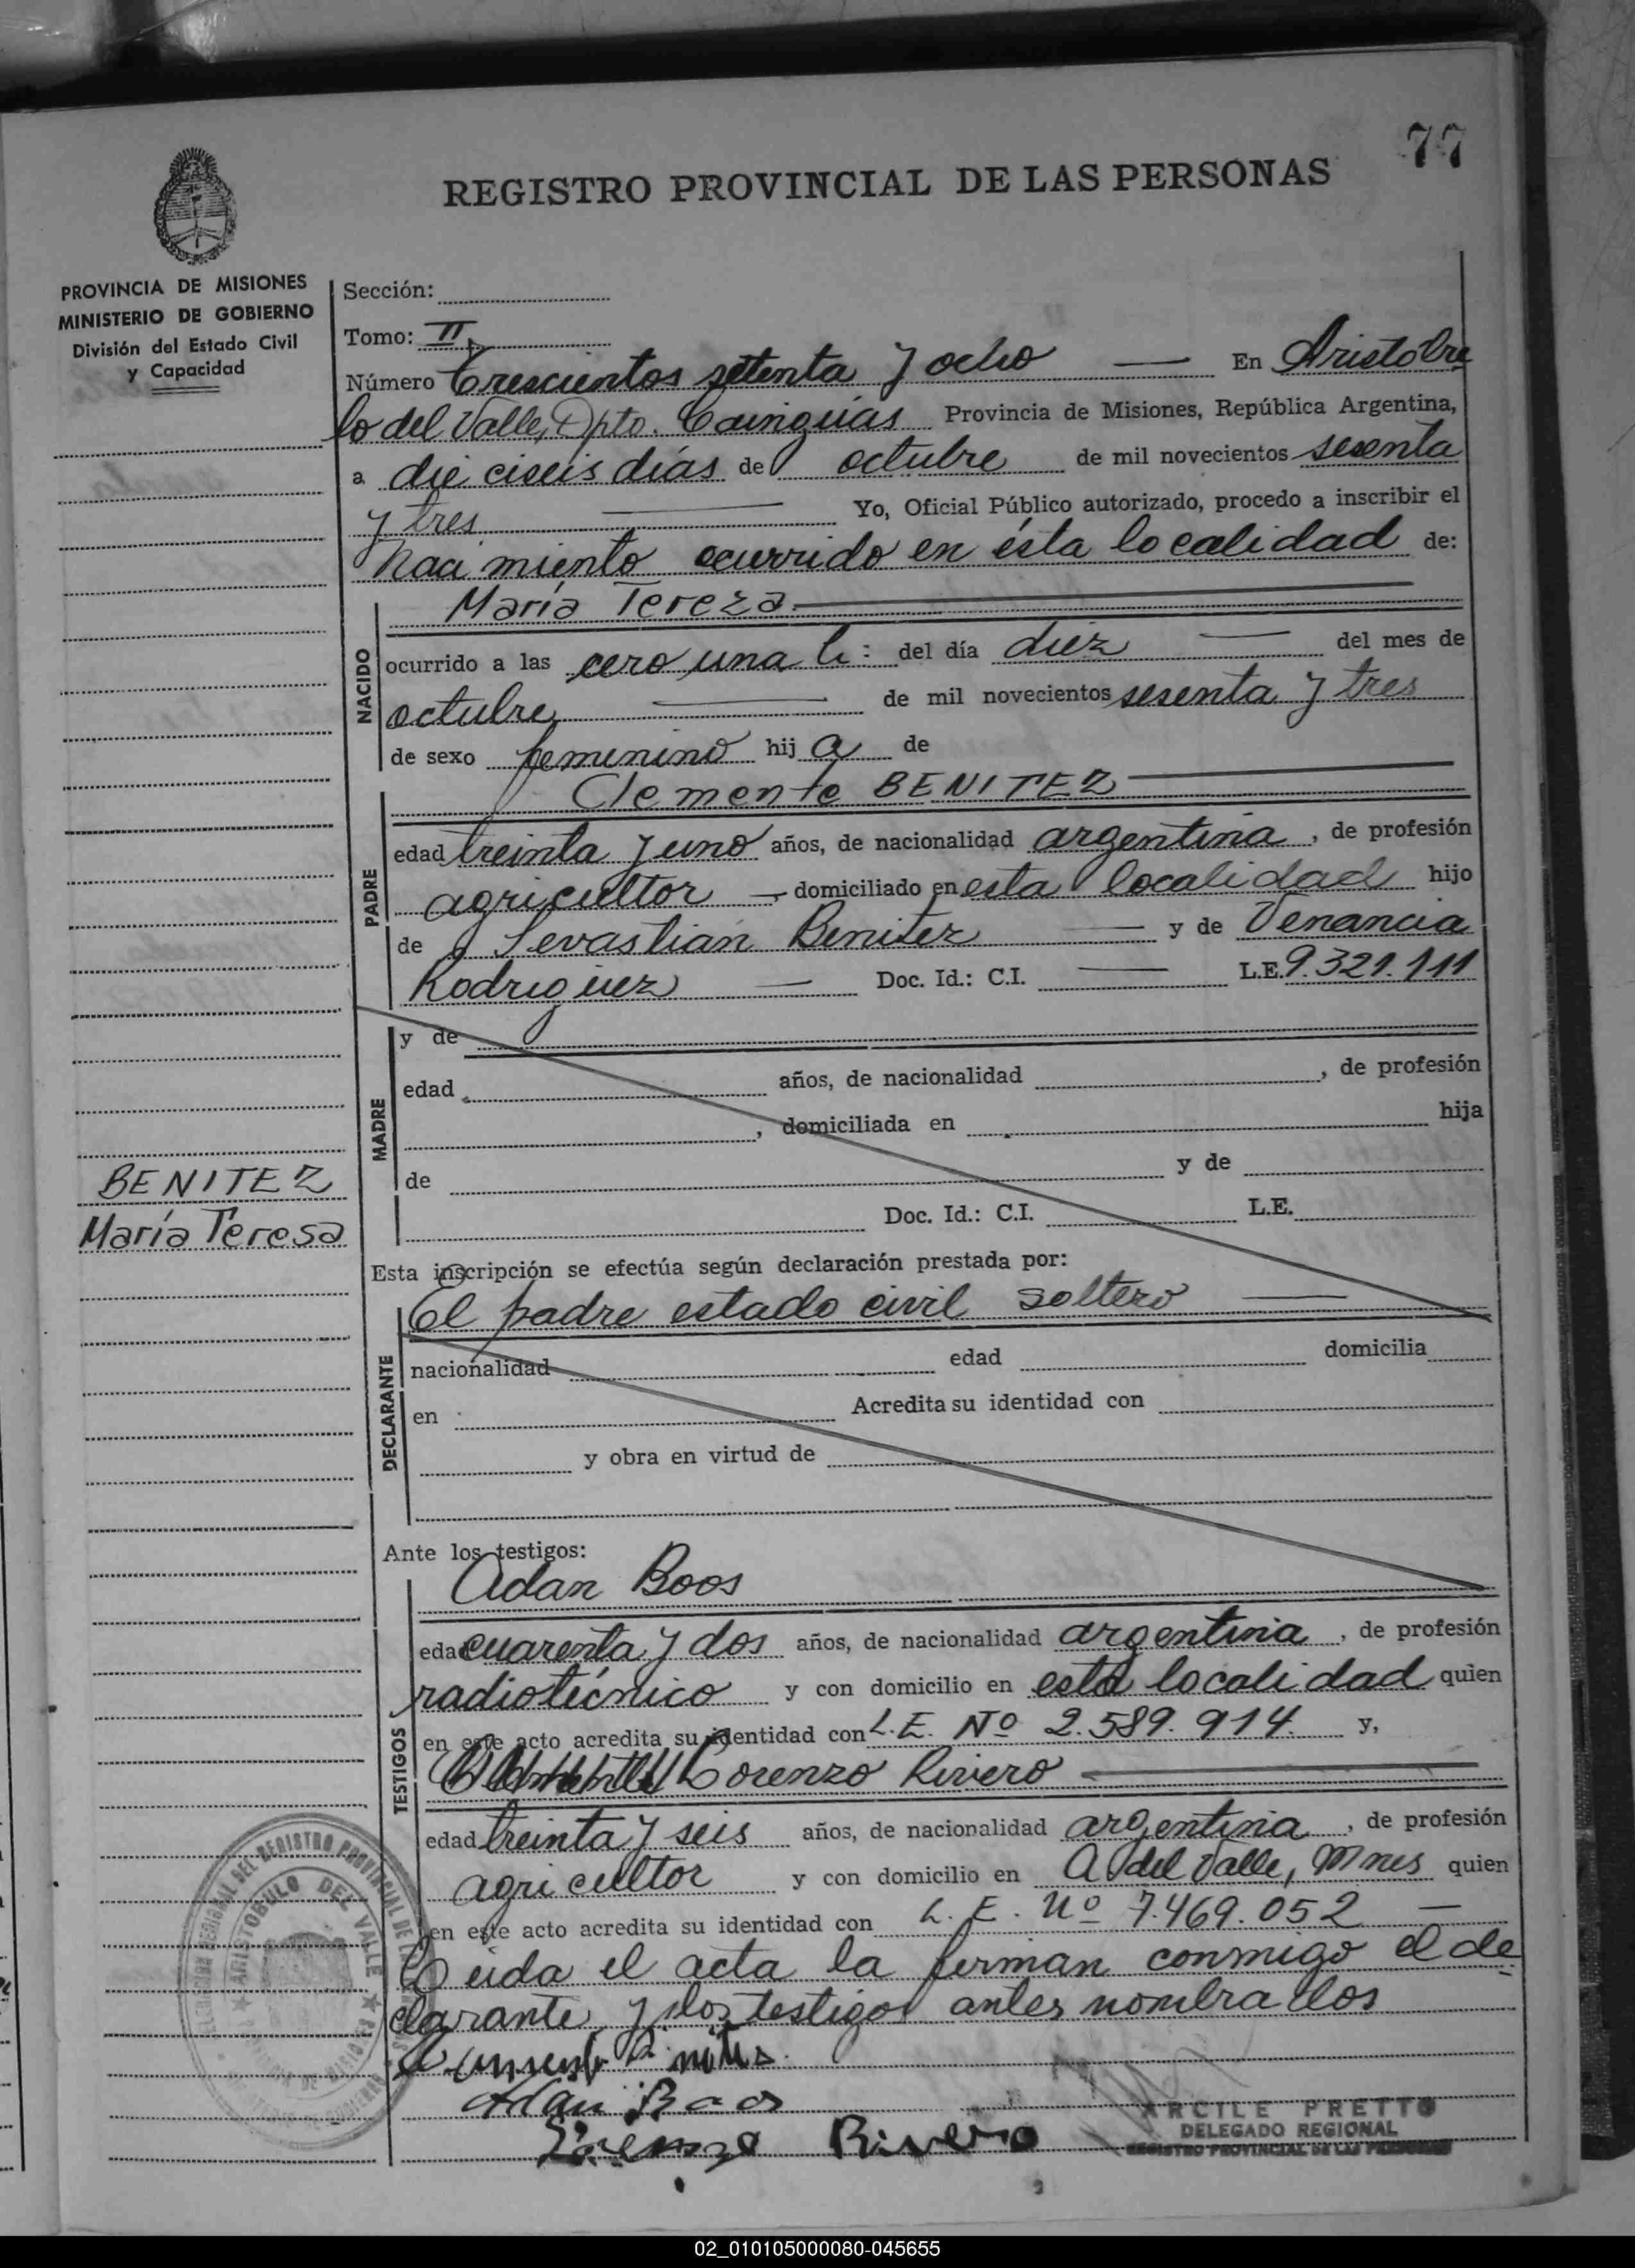 77
REGISTRO PROVINCIAL DE LAS PERSONAS
PROVINCIA DE MISIONES
MINISTERIO DE GOBIERNO
División del Estado Civil
y Capacidad
Sección:
Tomo: II
Número Trescientos setenta y ocho — En Aristóbu
lo del Valle, Dpto. Cainguás Provincia de Misiones, República Argentina,
a dieciseis días de octubre de mil novecientos sesenta
y tres — Yo, Oficial Público autorizado, procedo a inscribir el
nacimiento ocurrido en ésta localidad de:
NACIDO
María Tereza
ocurrido a las cero una h: del día diez — del mes de
octubre — de mil novecientos sesenta y tres
de sexo femenino hija de
PADRE
Clemente BENITEZ
edad treinta y uno años, de nacionalidad argentina, de profesión
agricultor — domiciliado en esta localidad hijo
de Sevastián Benitez — y de Venancia
Rodriguez — Doc. Id.: C.I. — L.E. 9.321.111
MADRE
y de
edad años, de nacionalidad , de profesión
, domiciliada en hija
de y de
Doc. Id.: C.I. L.E.
BENITEZ
María Teresa
Esta inscripción se efectúa según declaración prestada por:
DECLARANTE
El padre estado civil soltero —
nacionalidad edad domicilia
en Acredita su identidad con
y obra en virtud de
Ante los testigos:
TESTIGOS
Adan Boos
edad cuarenta y dos años, de nacionalidad argentina, de profesión
radiotécnico y con domicilio en esta localidad quien
en este acto acredita su identidad con L.E. Nº 2.589.914. y,
Lorenzo Rivero
edad treinta y seis años, de nacionalidad argentina, de profesión
agricultor y con domicilio en A del Valle, Mnes quien
en este acto acredita su identidad con L.E. Nº 7.469.052 —
Leida el acta la firman conmigo el de
clarante y los testigos antes nombrados
Adan Boos
Lorenzo Rivero
ARCILE PRETTO
DELEGADO REGIONAL
REGISTRO PROVINCIAL DE LAS PERSONAS
ARISTOBULO DEL VALLE
02_010105000080-045655